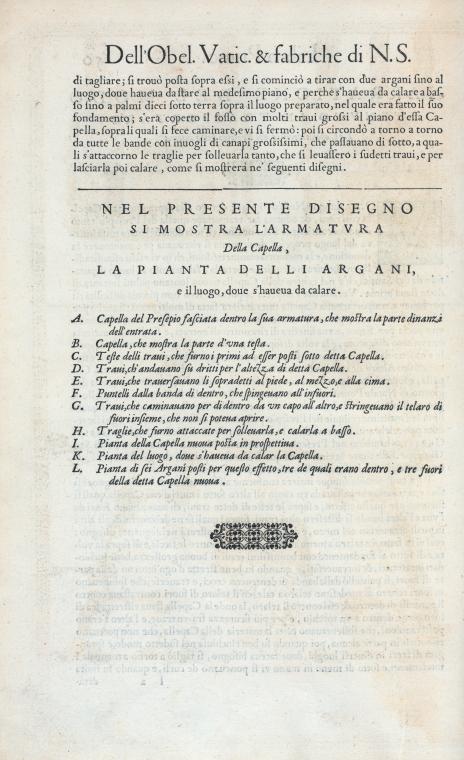 Dell'Obel. Vatic. & fabriche di N.S.
di tagliare; si trouò posta sopra essi, e si cominciò a tirar con due argani sino al
luogo, doue haueua da stare al medesimo piano, e perche s'haueua da calare a bas-
so sino a palmi dieci sotto terra sopra il luogo preparato, nel quale era fatto il suo
fondamento; s'era coperto il fosso con molti traui grossi al piano d'essa Ca-
pella, sopra li quali si fece caminare, e vi si fermò: poi si circondò a torno a torno
da tutte le bande con inuogli di canapi grossissimi, che passauano di sotto, a qua-
li s'attaccorno le traglie per solleuarla tanto, che si leuassero i sudetti traui, e per
lasciarla poi calare, come si mostrerà ne' seguenti disegni.
NEL PRESENTE DISEGNO
SI MOSTRA L'ARMATVRA
Della Capella,
LA PIANTA DELLI ARGANI,
e il luogo, doue s'haueua da calare.
A. Capella del Presepio fasciata dentro la sua armatura, che mostra la parte dinanzi
dell'entrata.
B. Capella, che mostra la parte d'vna testa.
C. Teste delli traui, che furno i primi ad esser posti sotto detta Capella.
D. Traui, ch'andauano sù dritti per l'altezza di detta Capella.
E. Traui, che trauersauano li sopradetti al piede, al mezzo, e alla cima.
F. Puntelli dalla banda di dentro, che spingeuano all'infuori.
G. Traui, che caminauano per di dentro da vn capo all'altro, e stringeuano il telaro di
fuori insieme, che non si poteua aprire.
H. Traglie, che furno attaccate per solleuarla, e calarla a basso.
I. Pianta della Capella nuoua posta in prospettiua.
K. Pianta del luogo, doue s'haueua da calar la Capella.
L. Pianta di sei Argani posti per questo effetto, tre de quali erano dentro, e tre fuori
della detta Capella nuoua.